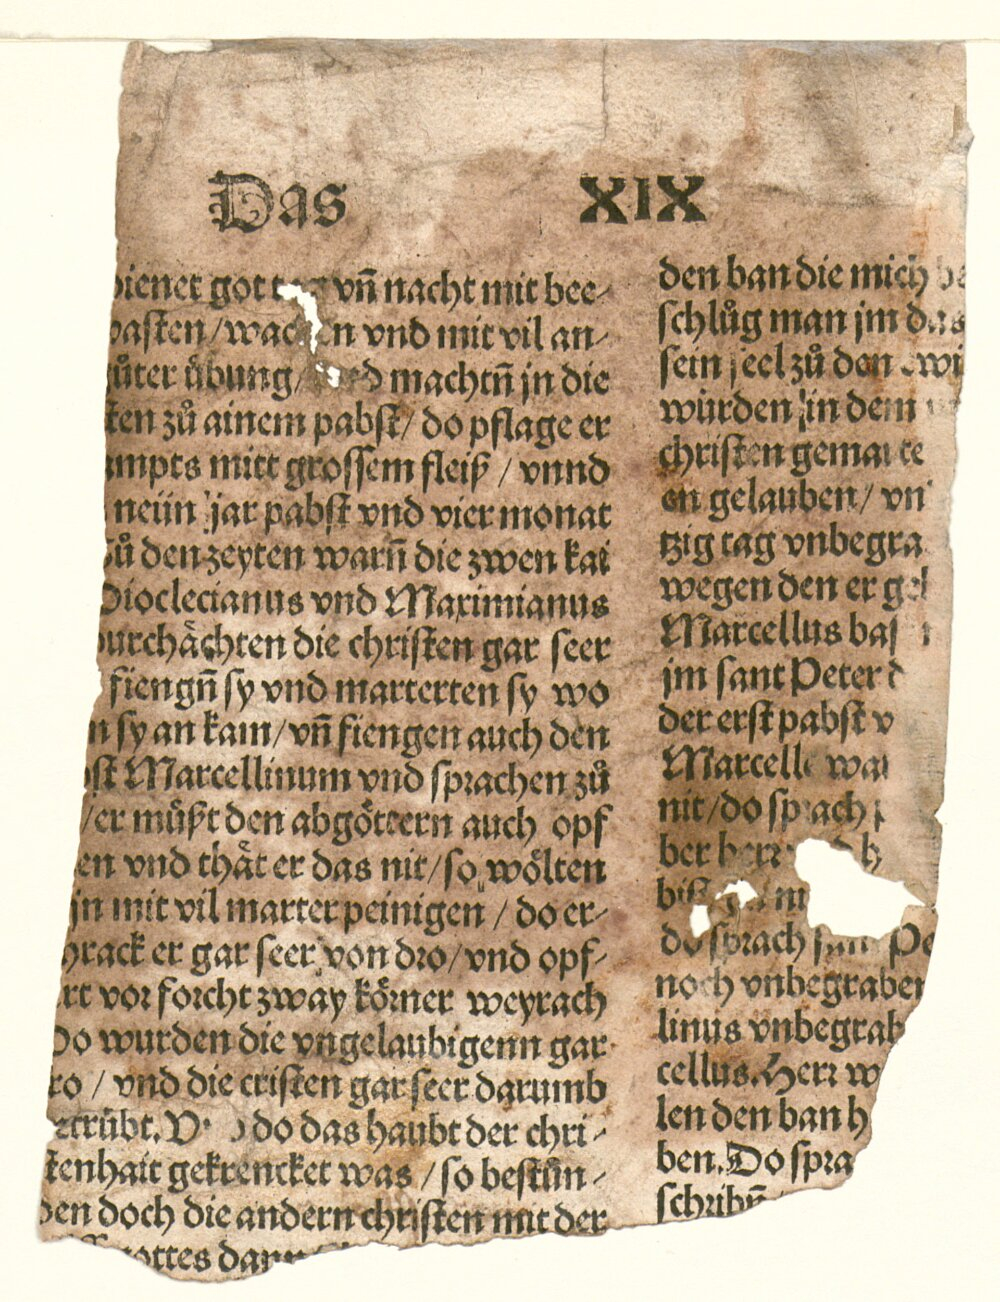 Das XIX
dienet got vñ nacht mit bee-
vasten / vnd mit vil an-
gůter übung / machtñ jn die
ten zů ainem pabst / do pflage er
ampts mitt grossem fleiß / vnnd
neün jar pabst vnd vier monat
Zů den zeyten warñ die zwen kai
Dioclecianus vnd Maximianus
durchåchten die christen gar seer
fiengñ sy vnd marterten sy wo
sy an kam / vñ fiengen auch den
Marcellinum vnd sprachen zů
/ er müßt den abgöttern auch opf
en vnd thåt er das nit / so wölten
jn mit vil marter peinigen / do er-
er gar seer von dro / vnd opf-
vor forcht zway körner weyrach
Do wurden die vngelaubigenn gar
ro / vnd die cristen gar seer darumb
do das haubt der chri-
tenhait gekrencket was / so bestůn-
den doch die andern christen mit der
gottes
den ban die mich
schlůg man jm das
sein seel zů den
würden jn dem
christen
en gelauben / vn
tzig tag vnbegra
wegen den er gel
Marcellus
jm sant Peter
der erst pabst v
Marcell wa
nit / do sprach
ber herr
do sprach
noch vnbegraben
linus vnbegrab
cellus. Herr w
len den ban h
ben. Do spra
schribñ